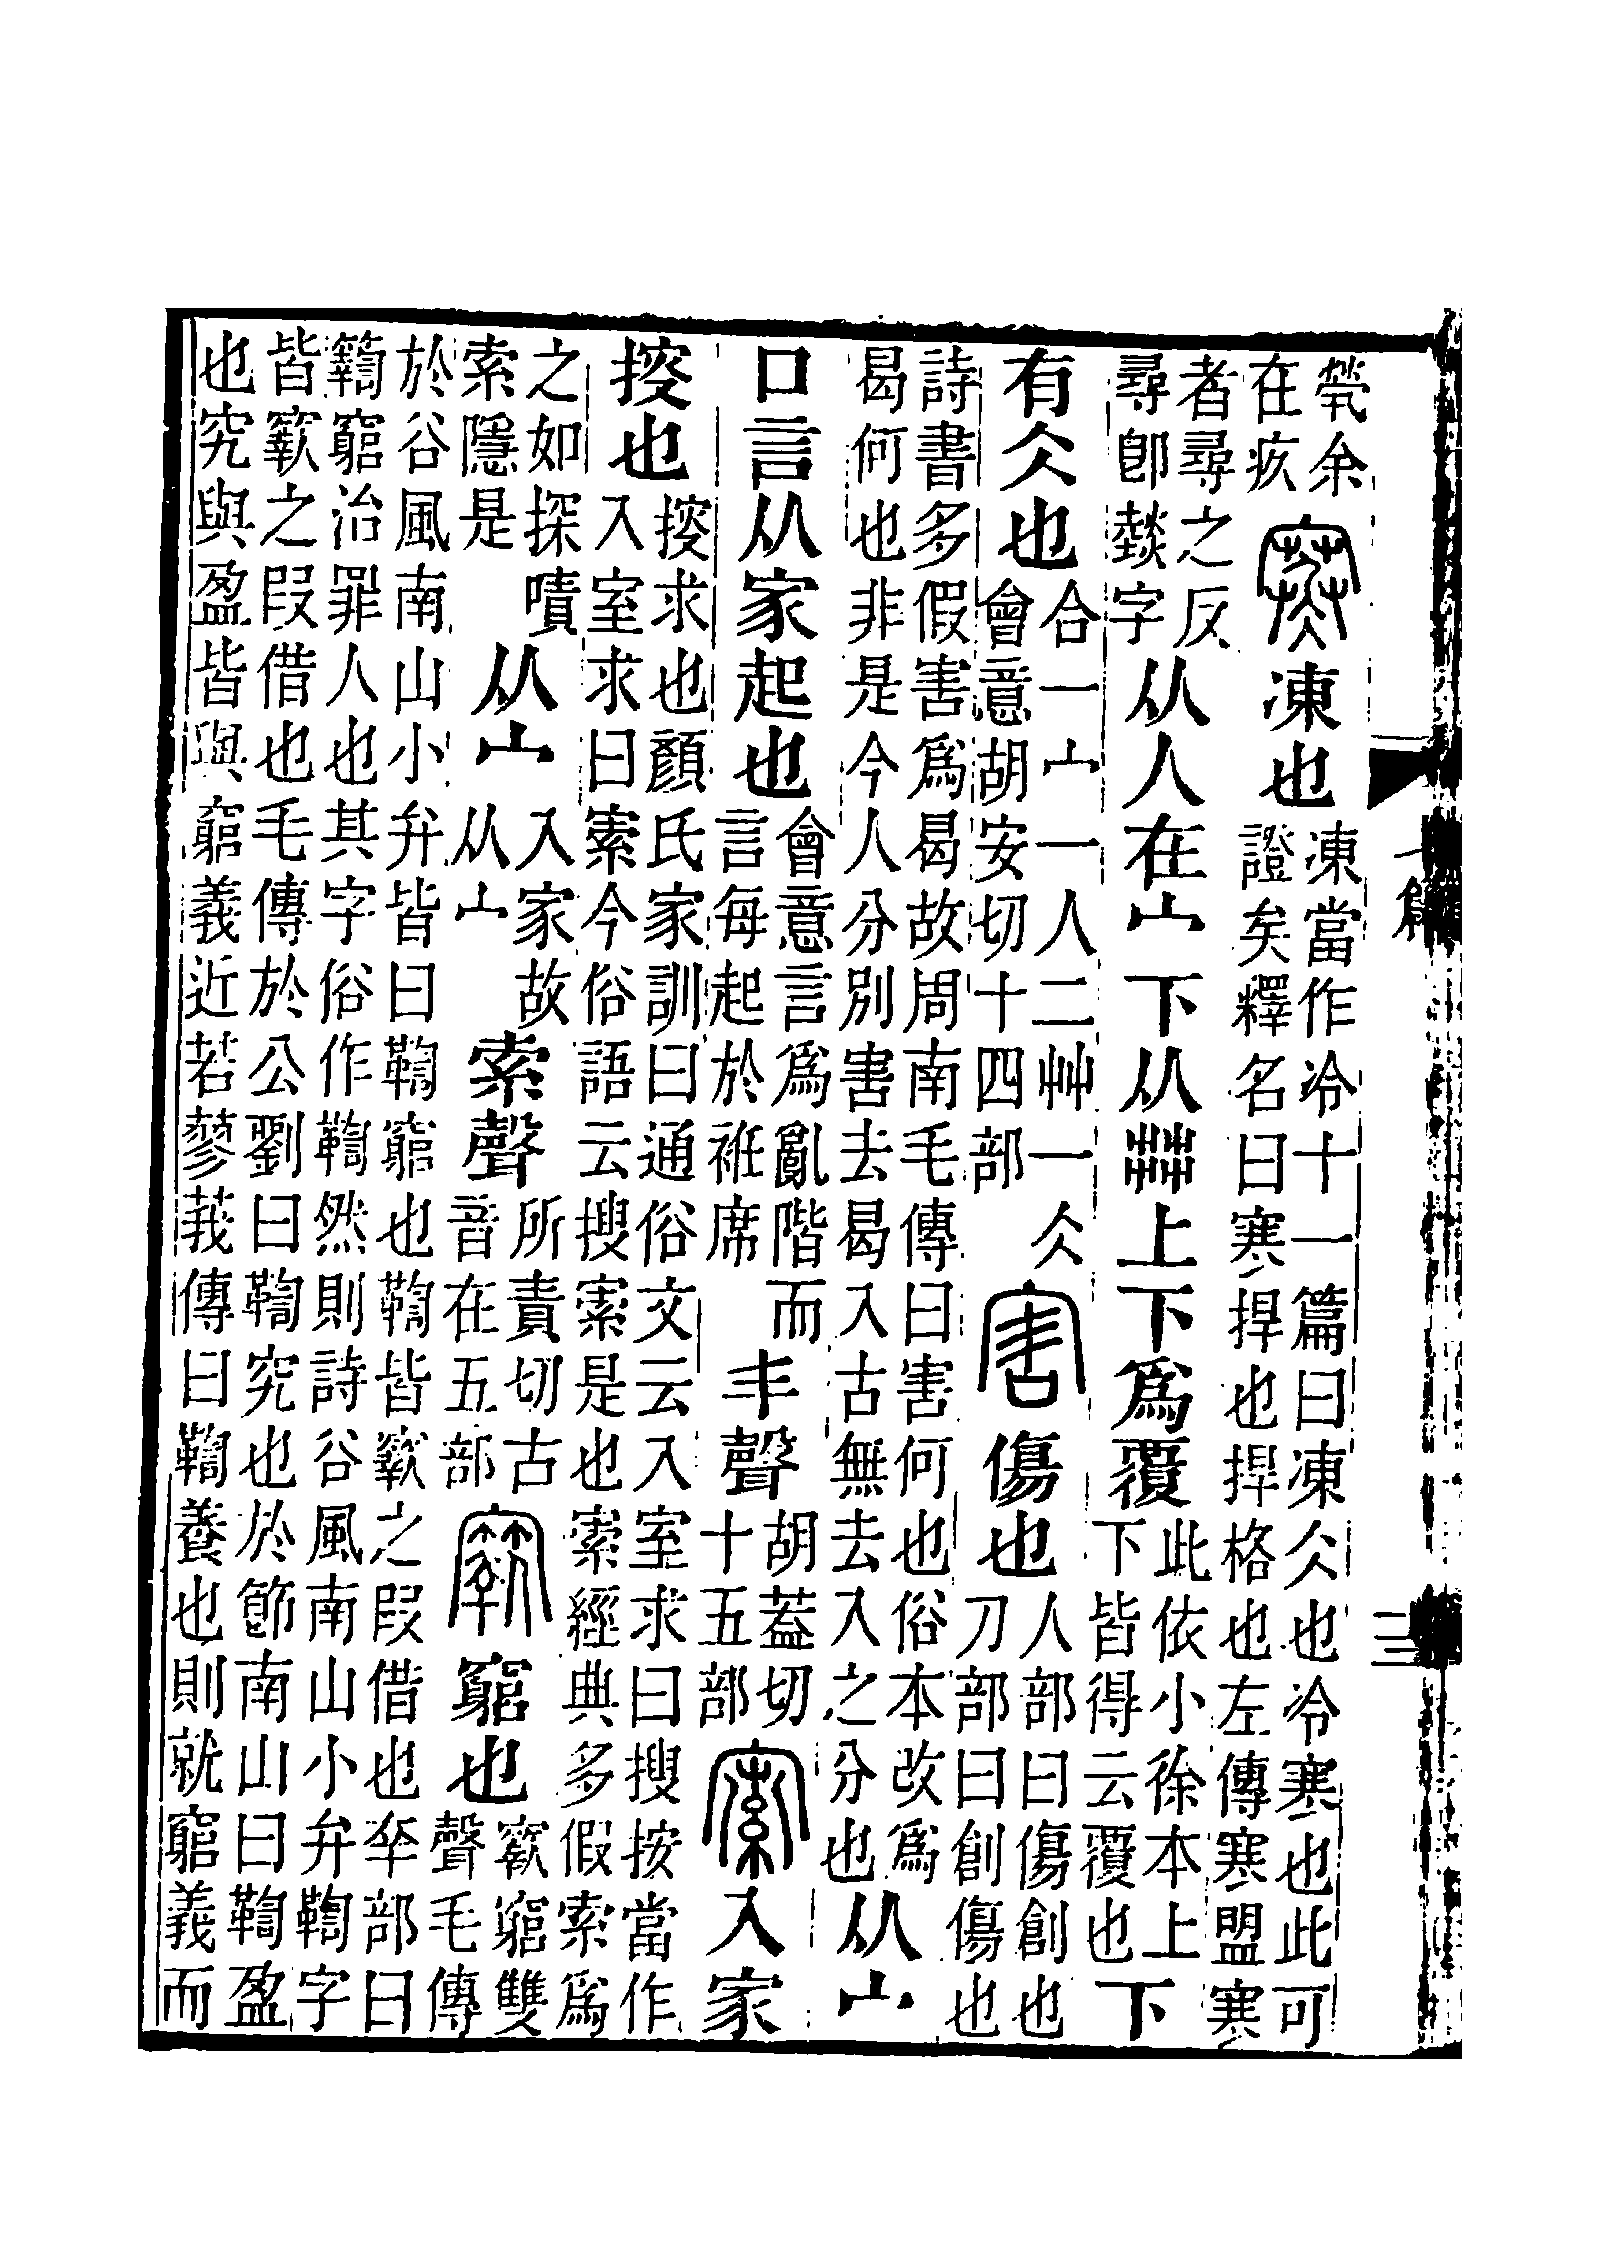 煢余在疚寒凍也凍當作冷十一篇曰凍仌也冷寒也此可證矣釋名曰寒捍也捍格也左傳寒盟寒
者尋之反尋卽燅字从人在宀下从茻上下爲覆此依小徐本上下皆得云覆也下
有仌也合一宀一人二艸一仌會意胡安切十四部害傷也人部曰傷創也刀部曰創傷也
詩書多假害爲曷故周南毛傳曰害何也俗本改爲曷何也非是今人分別害去曷入古無去入之分也从宀
口言从家起也會意言爲亂階而言每起於袵席丯聲胡蓋切十五部𡩡入家
㨙也㨙求也顏氏家訓曰通俗文云入室求曰搜按當作入室求曰𡩡今俗語云搜𡩡是也索經典多假索爲
之如探嘖索隱是从宀入家故从宀索聲所責切古音在五部𥨥窮也𥨥窮雙聲毛傳
於谷風南山小弁皆曰鞫窮也鞫皆𥨥之叚借也㚔部曰𥷚窮治罪人也其字俗作鞫然則詩谷風南山小弁鞫字
皆𥨥之叚借也毛傳於公劉曰鞫究也於節南山曰鞫盈也究與盈皆與窮義近若蓼莪傳曰鞫養也則就窮義而
七篇